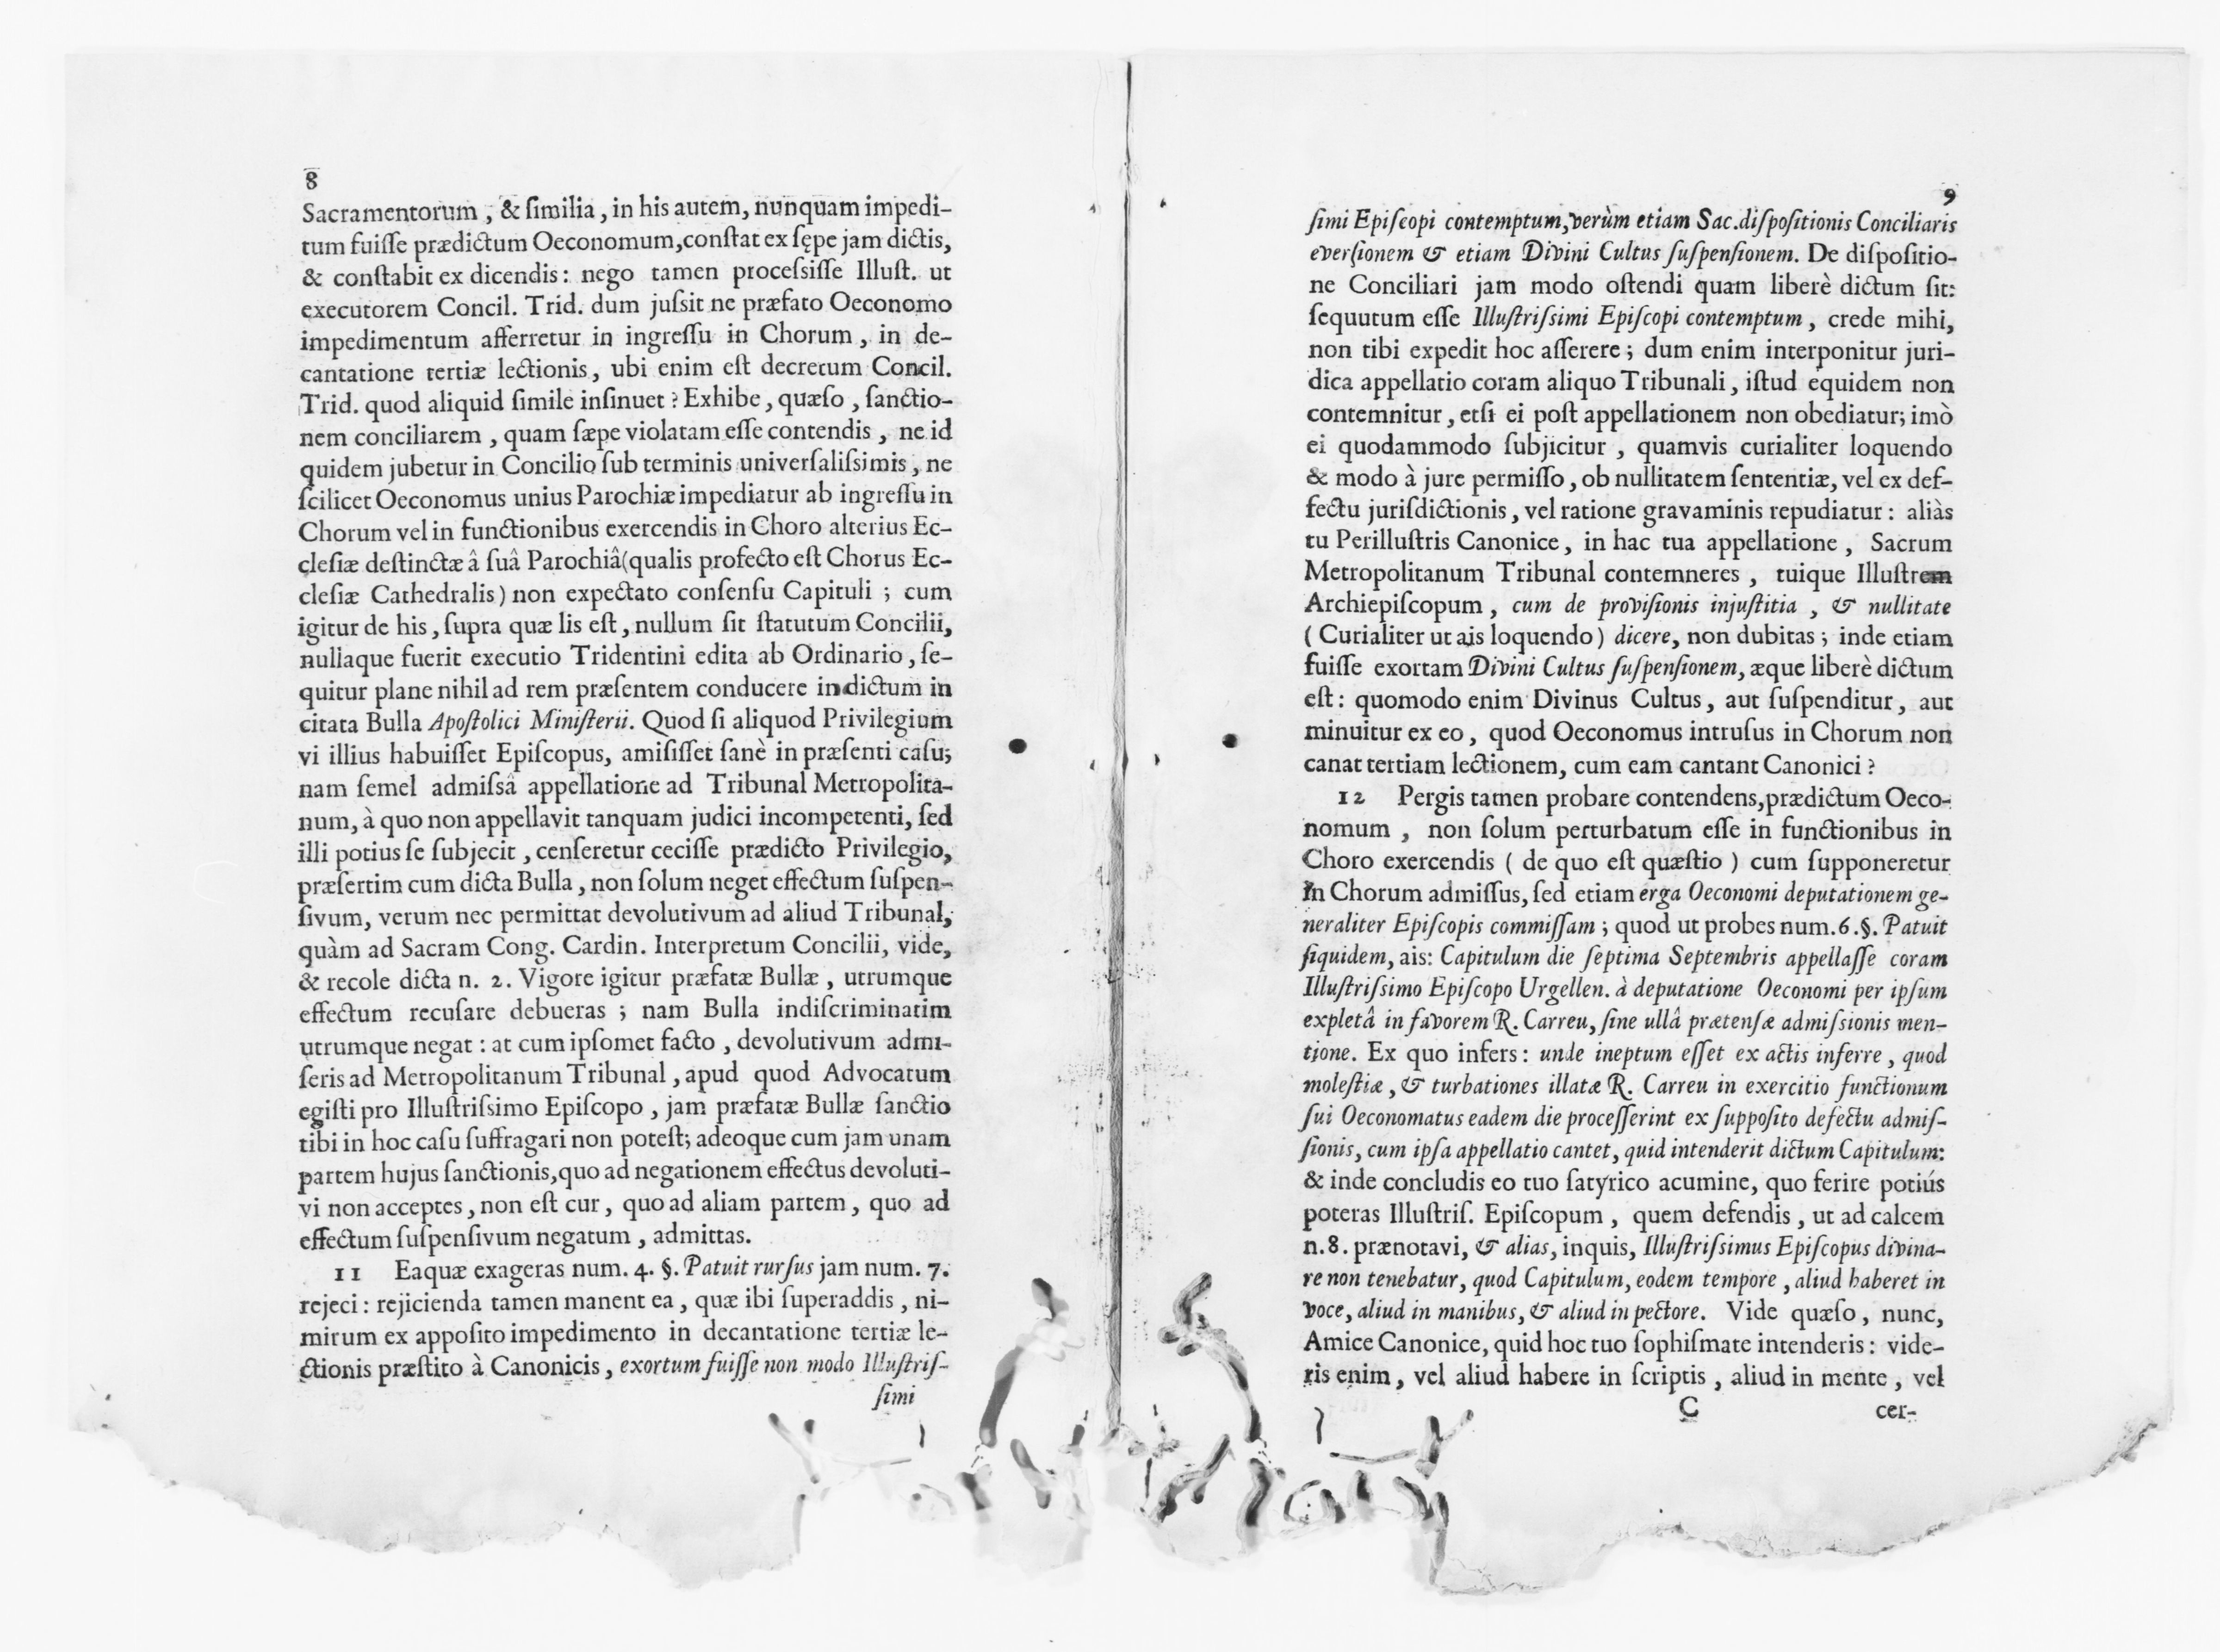 8
Sacramentorum, & ſimilia, in his autem, nunquam impedi-
tum fuiſſe prædictum Oeconomum, conſtat ex ſępe jam dictis,
& conſtabit ex dicendis: nego tamen proceſsiſſe Illuſt. ut
executorem Concil. Trid. dum juſsit ne præfato Oeconomo
impedimentum afferretur in ingreſſu in Chorum, in de-
cantatione tertiæ lectionis, ubi enim eſt decretum Concil.
Trid. quod aliquid ſimile inſinuet? Exhibe, quæſo, ſanctio-
nem conciliarem, quam ſæpe violatam eſſe contendis, ne id
quidem jubetur in Concilio ſub terminis univerſaliſsimis, ne
ſcilicet Oeconomus unius Parochiæ impediatur ab ingreſſu in
Chorum vel in functionibus exercendis in Choro alterius Ec-
cleſiæ deſtinctæ â ſuâ Parochiâ (qualis profecto eſt Chorus Ec-
cleſiæ Cathedralis) non expectato conſenſu Capituli; cum
igitur de his, ſupra quæ lis eſt, nullum ſit ſtatutum Concilii,
nullaque fuerit executio Tridentini edita ab Ordinario, ſe-
quitur plane nihil ad rem præſentem conducere indictum in
citata Bulla Apoſtolici Miniſterii. Quod ſi aliquod Privilegium
vi illius habuiſſet Epiſcopus, amiſiſſet ſanè in præſenti caſu;
nam ſemel admiſsâ appellatione ad Tribunal Metropolita-
num, à quo non appellavit tanquam judici incompetenti, ſed
illi potius ſe ſubjecit, cenſeretur ceciſſe prædicto Privilegio,
præſertim cum dicta Bulla, non ſolum neget effectum ſuſpen-
ſivum, verum nec permittat devolutivum ad aliud Tribunal,
quàm ad Sacram Cong. Cardin. Interpretum Concilii, vide,
& recole dicta n. 2. Vigore igitur præfatæ Bullæ, utrumque
effectum recuſare debueras; nam Bulla indiſcriminatim
utrumque negat: at cum ipſomet facto, devolutivum admi-
ſeris ad Metropolitanum Tribunal, apud quod Advocatum
egiſti pro Illuſtriſsimo Epiſcopo, jam præfatæ Bullæ ſanctio
tibi in hoc caſu ſuffragari non poteſt; adeoque cum jam unam
partem hujus ſanctionis, quo ad negationem effectus devoluti-
vi non acceptes, non eſt cur, quo ad aliam partem, quo ad
effectum ſuſpenſivum negatum, admittas.
11 Eaquæ exageras num. 4. §. Patuit rurſus jam num. 7.
rejeci: rejicienda tamen manent ea, quæ ibi ſuperaddis, ni-
mirum ex appoſito impedimento in decantatione tertiæ le-
ctionis præſtito à Canonicis, exortum fuiſſe non modo Illuſtriſ-
ſimi
9
ſimi Epiſcopi contemptum, verùm etiam Sac. diſpoſitionis Conciliaris
everſionem & etiam Divini Cultus ſuſpenſionem. De diſpoſitio-
ne Conciliari jam modo oſtendi quam liberè dictum ſit:
ſequutum eſſe Illuſtriſsimi Epiſcopi contemptum, crede mihi,
non tibi expedit hoc aſſerere; dum enim interponitur juri-
dica appellatio coram aliquo Tribunali, iſtud equidem non
contemnitur, etſi ei poſt appellationem non obediatur; imò
ei quodammodo ſubjicitur, quamvis curialiter loquendo
& modo à jure permiſſo, ob nullitatem ſententiæ, vel ex def-
fectu juriſdictionis, vel ratione gravaminis repudiatur: aliàs
tu Perilluſtris Canonice, in hac tua appellatione, Sacrum
Metropolitanum Tribunal contemneres, tuique Illuſtrem
Archiepiſcopum, cum de proviſionis injuſtitia, & nullitate
(Curialiter ut ais loquendo) dicere, non dubitas; inde etiam
fuiſſe exortam Divini Cultus ſuſpenſionem, æque liberè dictum
eſt: quomodo enim Divinus Cultus, aut ſuſpenditur, aut
minuitur ex eo, quod Oeconomus intruſus in Chorum non
canat tertiam lectionem, cum eam cantant Canonici?
12 Pergis tamen probare contendens, prædictum Oeco-
nomum, non ſolum perturbatum eſſe in functionibus in
Choro exercendis (de quo eſt quæſtio) cum ſupponeretur
in Chorum admiſſus, ſed etiam erga Oeconomi deputationem ge-
neraliter Epiſcopis commiſſam; quod ut probes num. 6. §. Patuit
ſiquidem, ais: Capitulum die ſeptima Septembris appellaſſe coram
Illuſtriſsimo Epiſcopo Urgellen. à deputatione Oeconomi per ipſum
expletâ in favorem R. Carreu, ſine ullâ prætenſæ admiſsionis men-
tione. Ex quo infers: unde ineptum eſſet ex actis inferre, quod
moleſtiæ, & turbationes illatæ R. Carreu in exercitio functionum
ſui Oeconomatus eadem die proceſſerint ex ſuppoſito defectu admiſ-
ſionis, cum ipſa appellatio cantet, quid intenderit dictum Capitulum:
& inde concludis eo tuo ſatyrico acumine, quo ferire potiús
poteras Illuſtriſ. Epiſcopum, quem defendis, ut ad calcem
n. 8. prænotavi, & alias, inquis, Illuſtriſsimus Epiſcopus divina-
re non tenebatur, quod Capitulum, eodem tempore, aliud haberet in
voce, aliud in manibus, & aliud in pectore. Vide quæſo, nunc,
Amice Canonice, quid hoc tuo ſophiſmate intenderis: vide-
ris enim, vel aliud habere in ſcriptis, aliud in mente, vel
C cer-